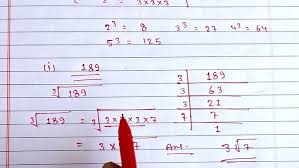 3×3×3
2³ = 8 3³ = 27 4³ = 64
5³ = 125
(i) 189
∛189
3 | 189
3 | 63
3 | 21
7 | 7
1
∛189 = ∛3×3×3×7
= 3×∛7 Ans. 3∛7